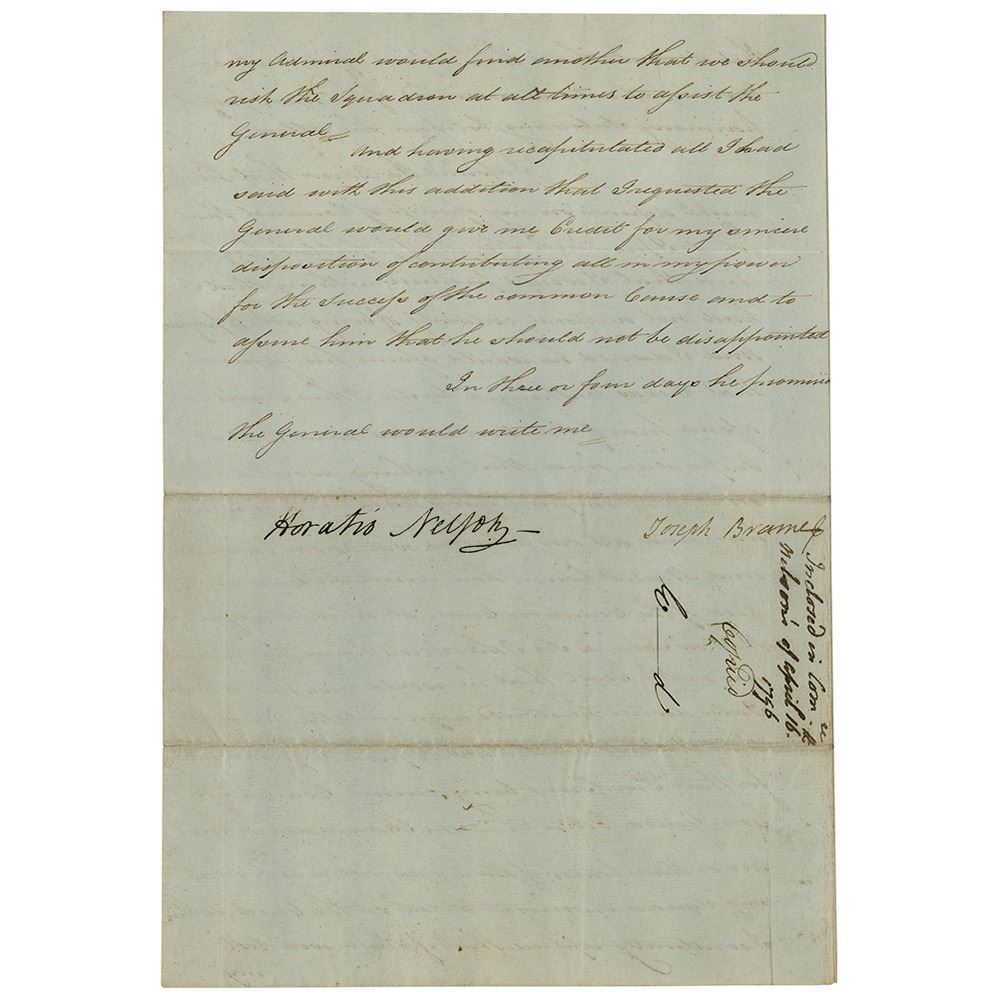 my Admiral would find another that we should
risk the Squadron at all times to assist the
General
And having recapitulated all I had
said with this addition that I requested the
General would give me Credit for my sincere
disposition of contributing all in my power
for the Success of the common Cause and to
assure him that he should not be disappointed
In three or four days he promised
the General would write me
Horatio Nelson
Joseph Brame
E d
Copied
Inclosed in Com re
Nelson's of April 16.
1796